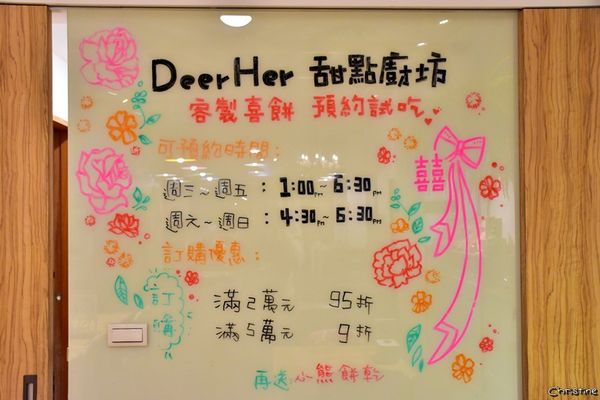 DeerHer 甜點廚坊
客製喜餅 預約試吃
可預約時間：
週三～週五：1:00pm～6:30pm
囍
週六～週日：4:30pm～6:30pm
訂購優惠：
訂購
滿2萬元 95折
滿5萬元 9折
再送：小熊餅乾
Christine